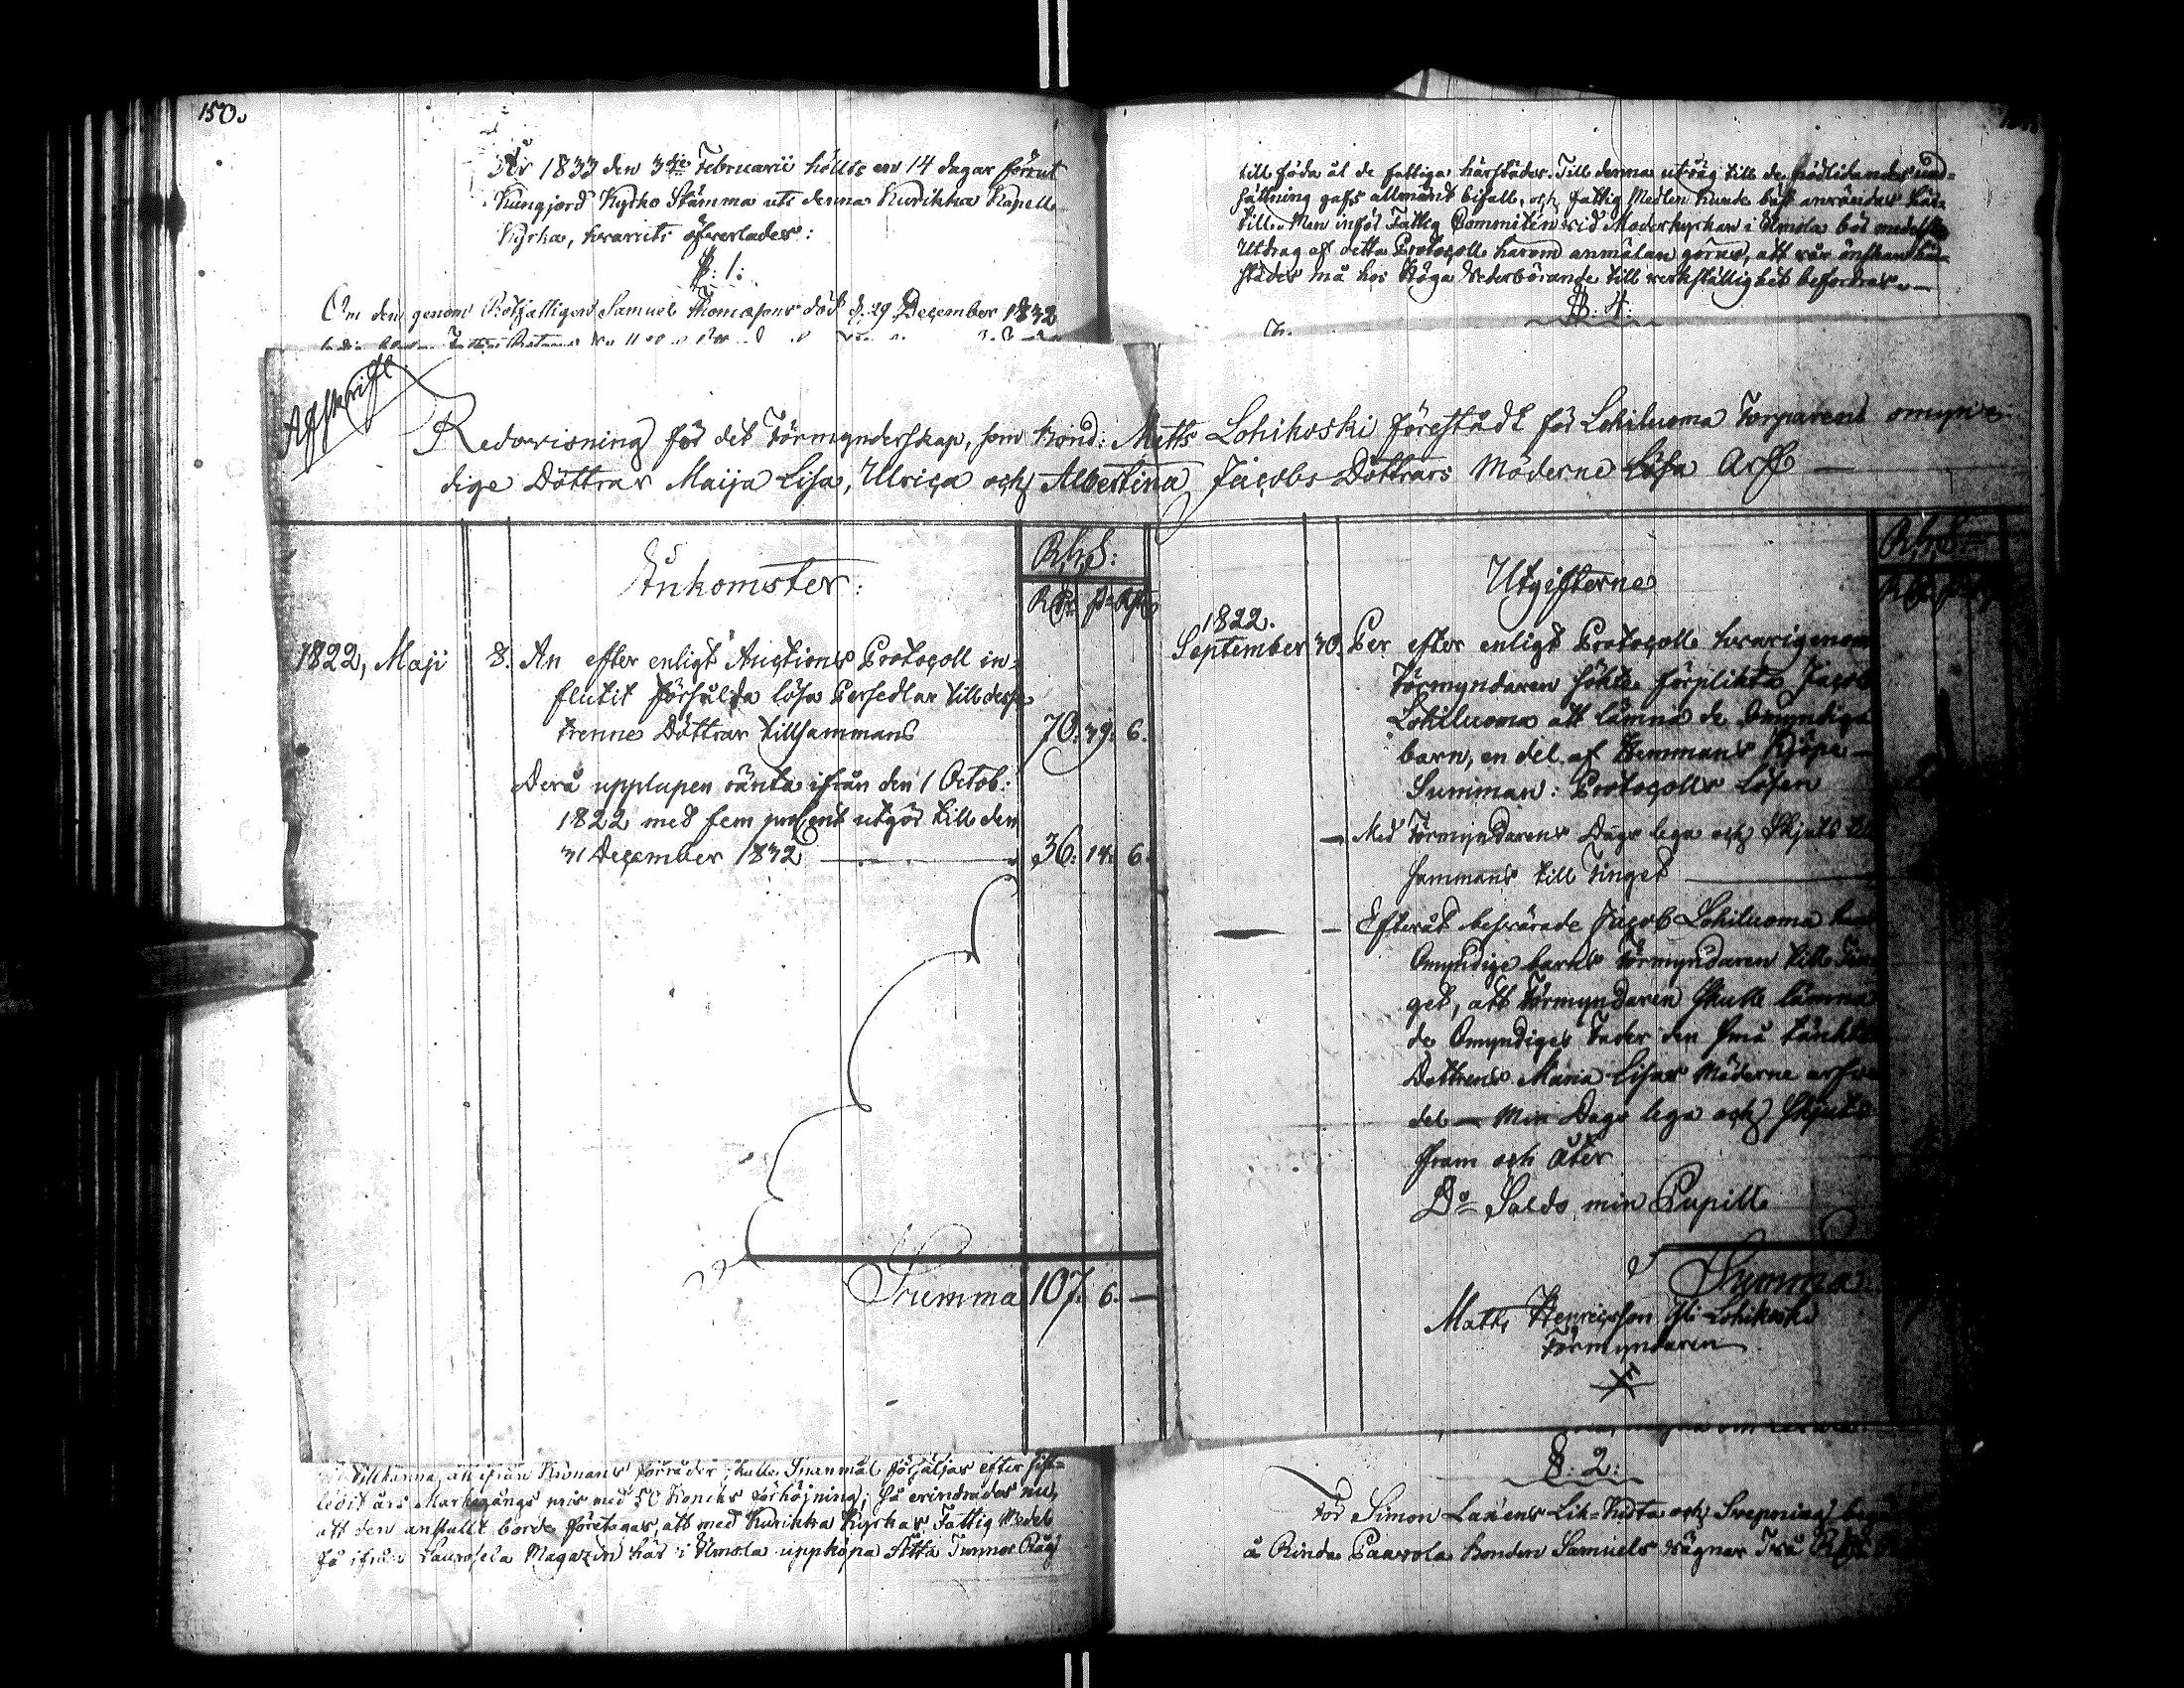 150.
År 1833 den 3die Februarii hölts en 14 dagar förrut
kungjord Kyrko Stämma uti denna Kurikka Kapell
Kyrka, hvaruti öfverlades:
§: 1:
Om den genom Rotfattigen Samuel Thomæsons död d. 29 December 1832
till föda åt de fattiga härstädes. Till denna utväg till de nödlidandes und=
sättning gafs allmänt bifall, och fattig Medlen kunde bäst användas här=
till. Men inför Fattig Committén vid Moderkyrkan i Ilmola bör medelst
Utdrag af detta Protocoll härom anmälan göras, att vår önskan här=
städes må hos Höga Vederbörande till verkställighet befordras.
§: 4:
Afskrift
Redovisning för det Förmynderskap, som bond: Matts Lohikoski förestådt för Lohiluoma Torparens omyn=
dige Döttrar Maija Lisa, Ulrica och Albertina Jacobs Döttrars Möderne Lösa Arf
Inkomster:
Rb. S:
1822, Maji 8. An efter enligt Auctions Protocoll in=
flutit försålda lösa Persedlar till dessa
trenne Döttrar tillsammans 70: 39: 6.
Derå upplupen ränta ifrån den 1 Octob:
1822 med fem procent utgör till den
31 December 1832 36: 14: 6.
Summa 107. 6. —
Utgifterne
1822.
September 30. Per efter enligt Protocoll hvarigenom
Förmyndaren sökte förplikta Jacob
Lohiluoma att lämna de Omyndiga
barn, en del af Hemmans Köpe
Summan: Protocolls Lösen
Med Förmyndarens Dags lega och Skjuts till
sammans till Tinget
Efteråt besvärade Jacob Lohiluoma
Omyndige barns Förmyndaren till Tin
get, att Förmyndaren skulle lämna
de Omyndiges Fader den små
Dottrens Maria Lisas Möderne arfs
del — Min Dags lega och Skjuts
fram och åter
Do Saldo min Pupill
Summa
Matts Henricsson Yli Lohikoski
Förmyndaren
tillkänna, att ifrån Kronans förråder skulle Spanmål försäljas efter sist=
ledit års Markegångs pris med 50 Kopeks förhöjning; så erindrades nu,
att den anstallt borde företagas, att med Kurikka Kyrkas Fattig Medel
få ifrån Laurosela Magazin här i Ilmola uppköpa Åtta Tunnor Råg
§: 2:
för Simon Laxéns Lik-Kista och Svepning
å Rinda Paavola bonden Samuels vägnar Två